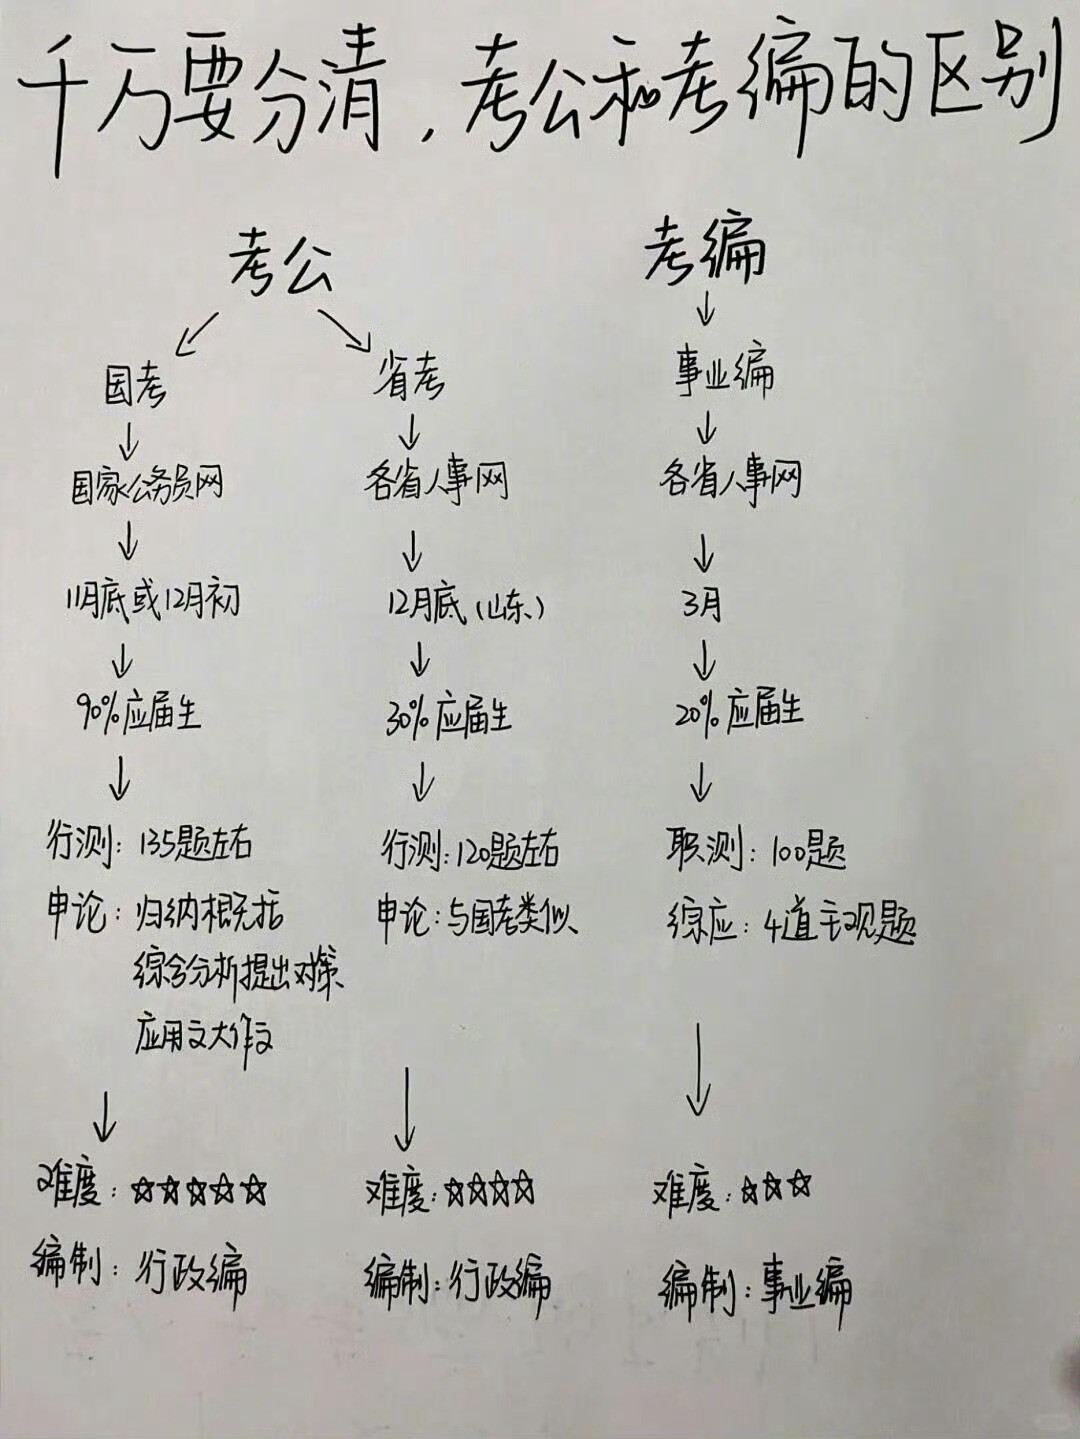 千万要分清，考公和考编的区别
考公
考编
国考
省考
事业编
国家公务员网
各省人事网
各省人事网
11月底或12月初
12月底（山东）
3月
90%应届生
30%应届生
20%应届生
行测：135题左右
行测：120题左右
职测：100题
申论：归纳概括
申论：与国考类似
综应：4道主观题
综合分析提出对策
应用文大作文
难度：☆☆☆☆☆
难度：☆☆☆☆
难度：☆☆☆
编制：行政编
编制：行政编
编制：事业编